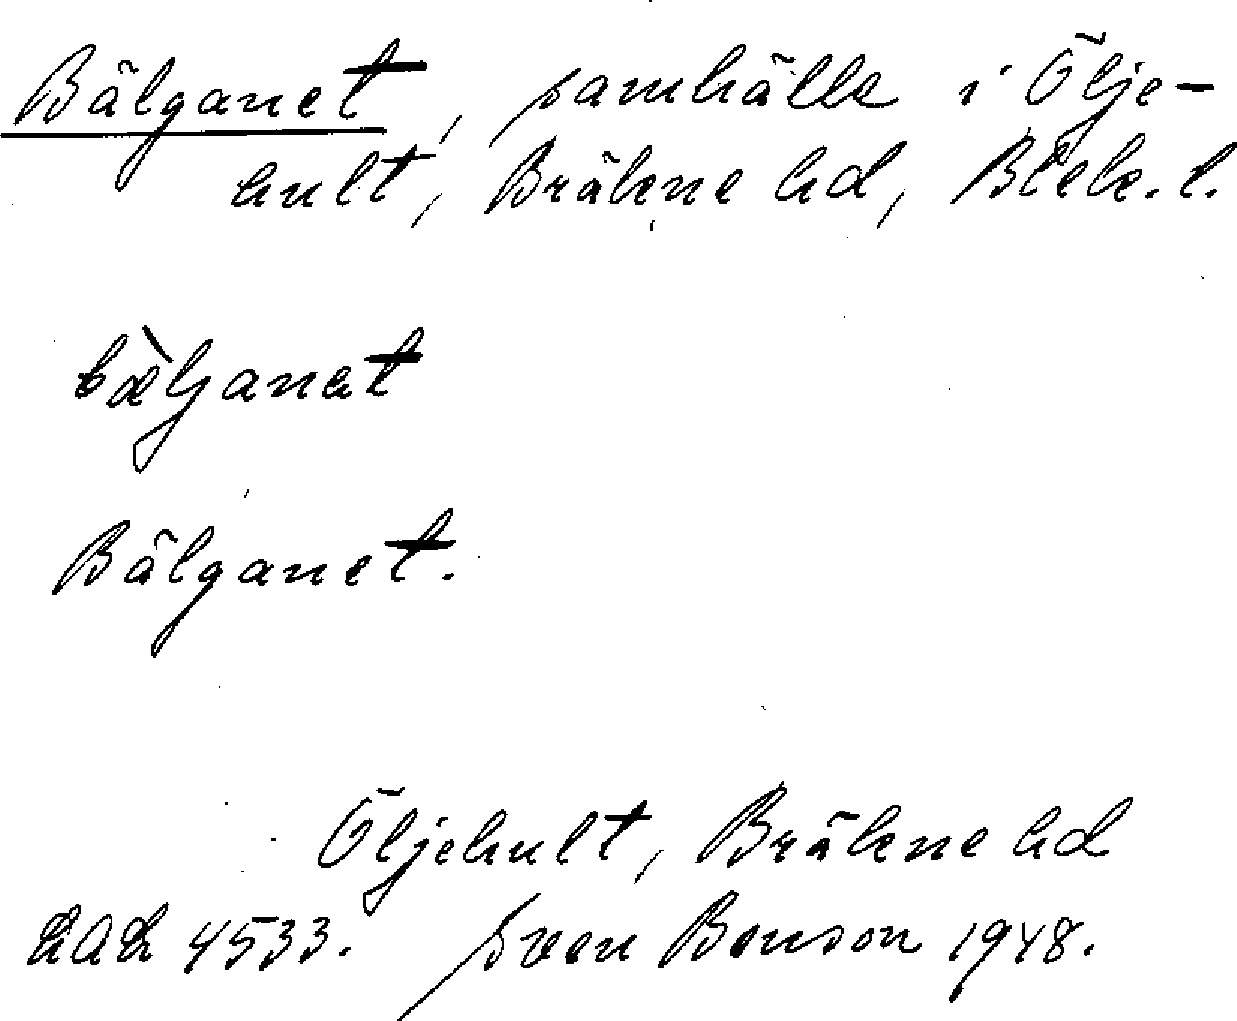 Bälganet, samhälle i Ölje-
hult, Bräkne hd, Blek. l.
bæ̀ljanat
Bälganet.
Öljehult, Bräkne hd
LAL 4533. Sven Benson 1948.